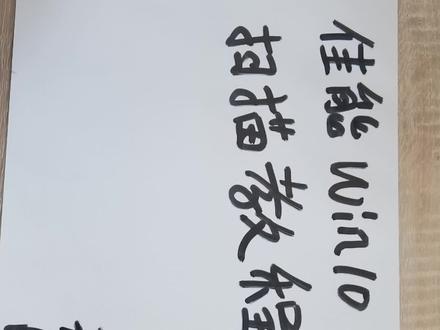 佳能Win10
扫描教程